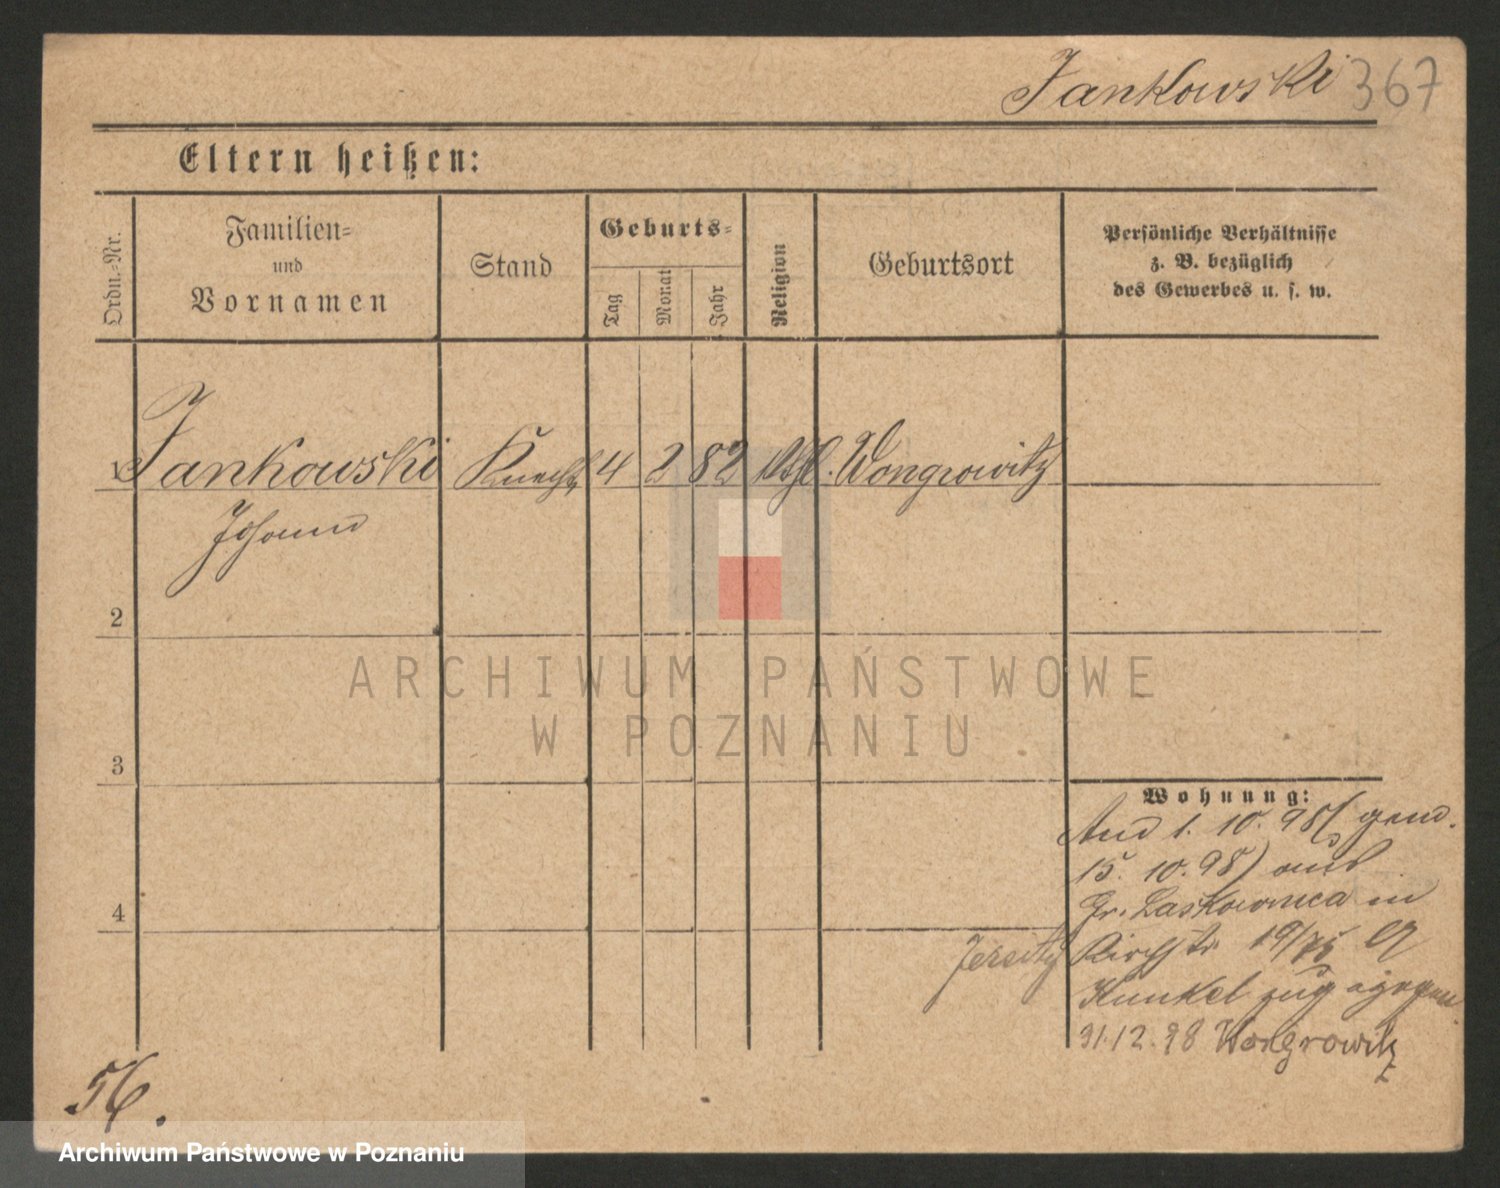 Jankowski 367
Eltern heißen:
Ordn.-Nr.
Familien-
und
Vornamen
Stand
Geburts-
Tag
Monat
Jahr
Religion
Geburtsort
Persönliche Verhältnisse
z. B. bezüglich
des Gewerbes u. s. w.
1 Jankowski Knecht 4 2 82 kthl. Wongrowitz
Johann
2
3
4
Wohnung:
And 1. 10. 98 (gem.
15. 10. 98) aus
Gr. Laskownica in
Jersitz Kirchstr. 19/
Kunkel zugezogen.
31.12.98 Wongrowitz
56.
ARCHIWUM PAŃSTWOWE
W POZNANIU
Archiwum Państwowe w Poznaniu